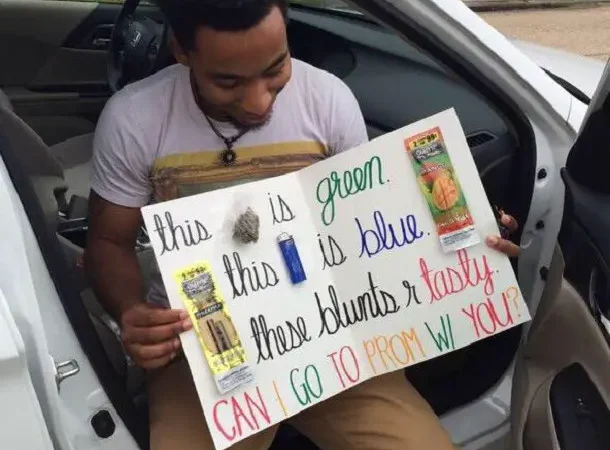 this is green.
this is blue.
these blunts r tasty.
CAN I GO TO PROM W/ YOU?